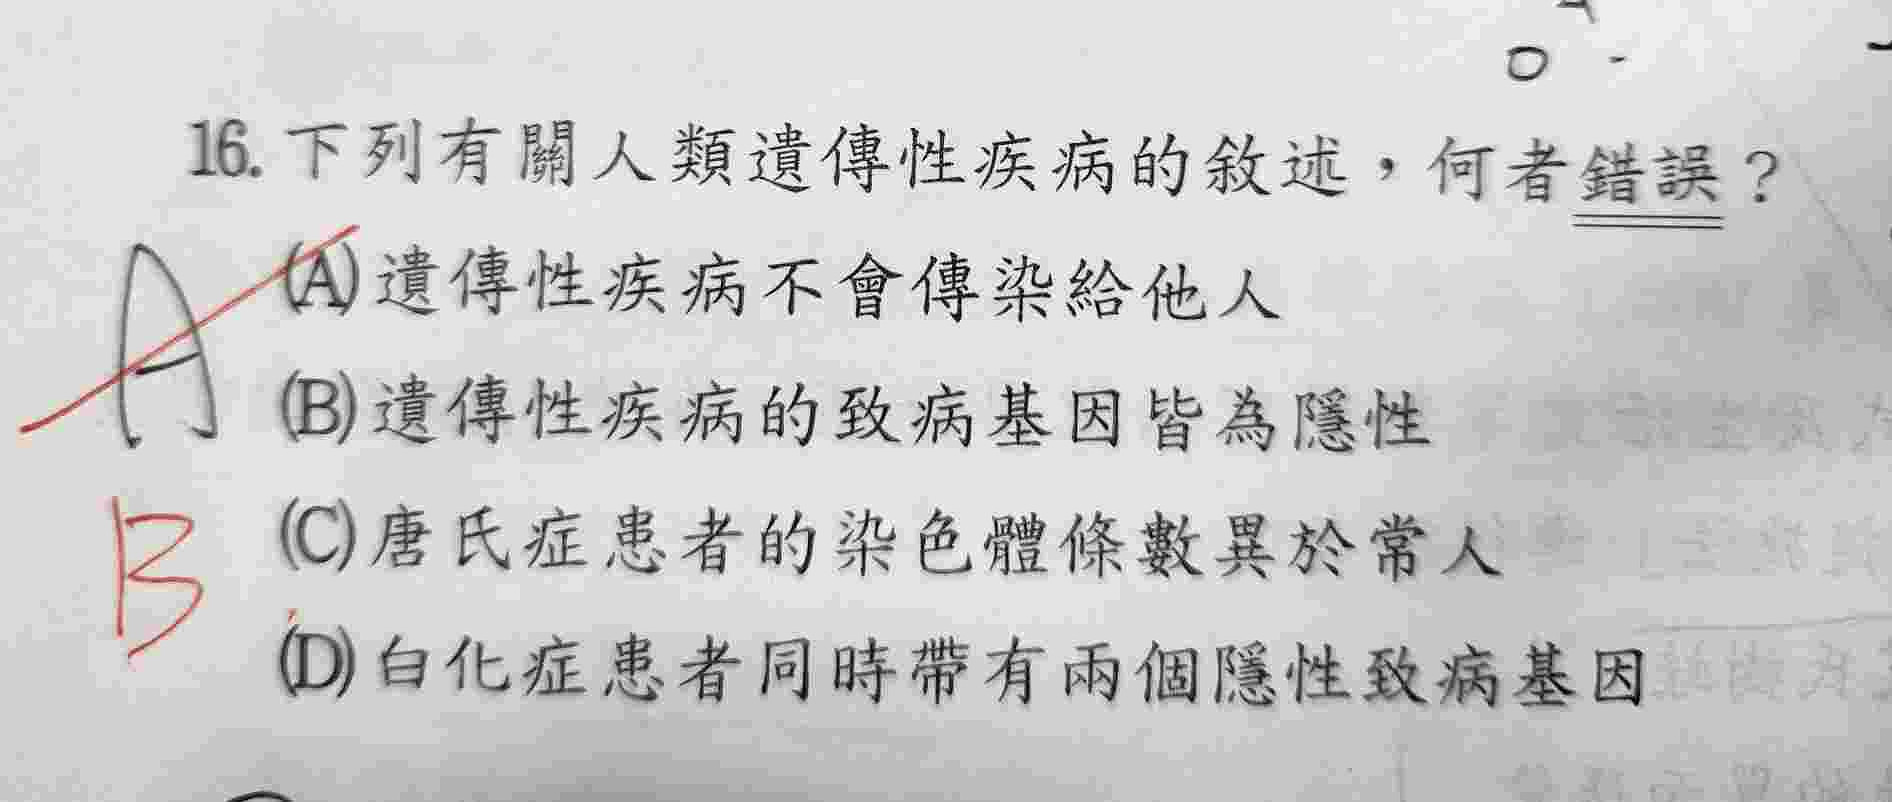 16. 下列有關人類遺傳性疾病的敘述，何者錯誤？
A
(A)遺傳性疾病不會傳染給他人
(B)遺傳性疾病的致病基因皆為隱性
B
(C)唐氏症患者的染色體條數異於常人
(D)白化症患者同時帶有兩個隱性致病基因